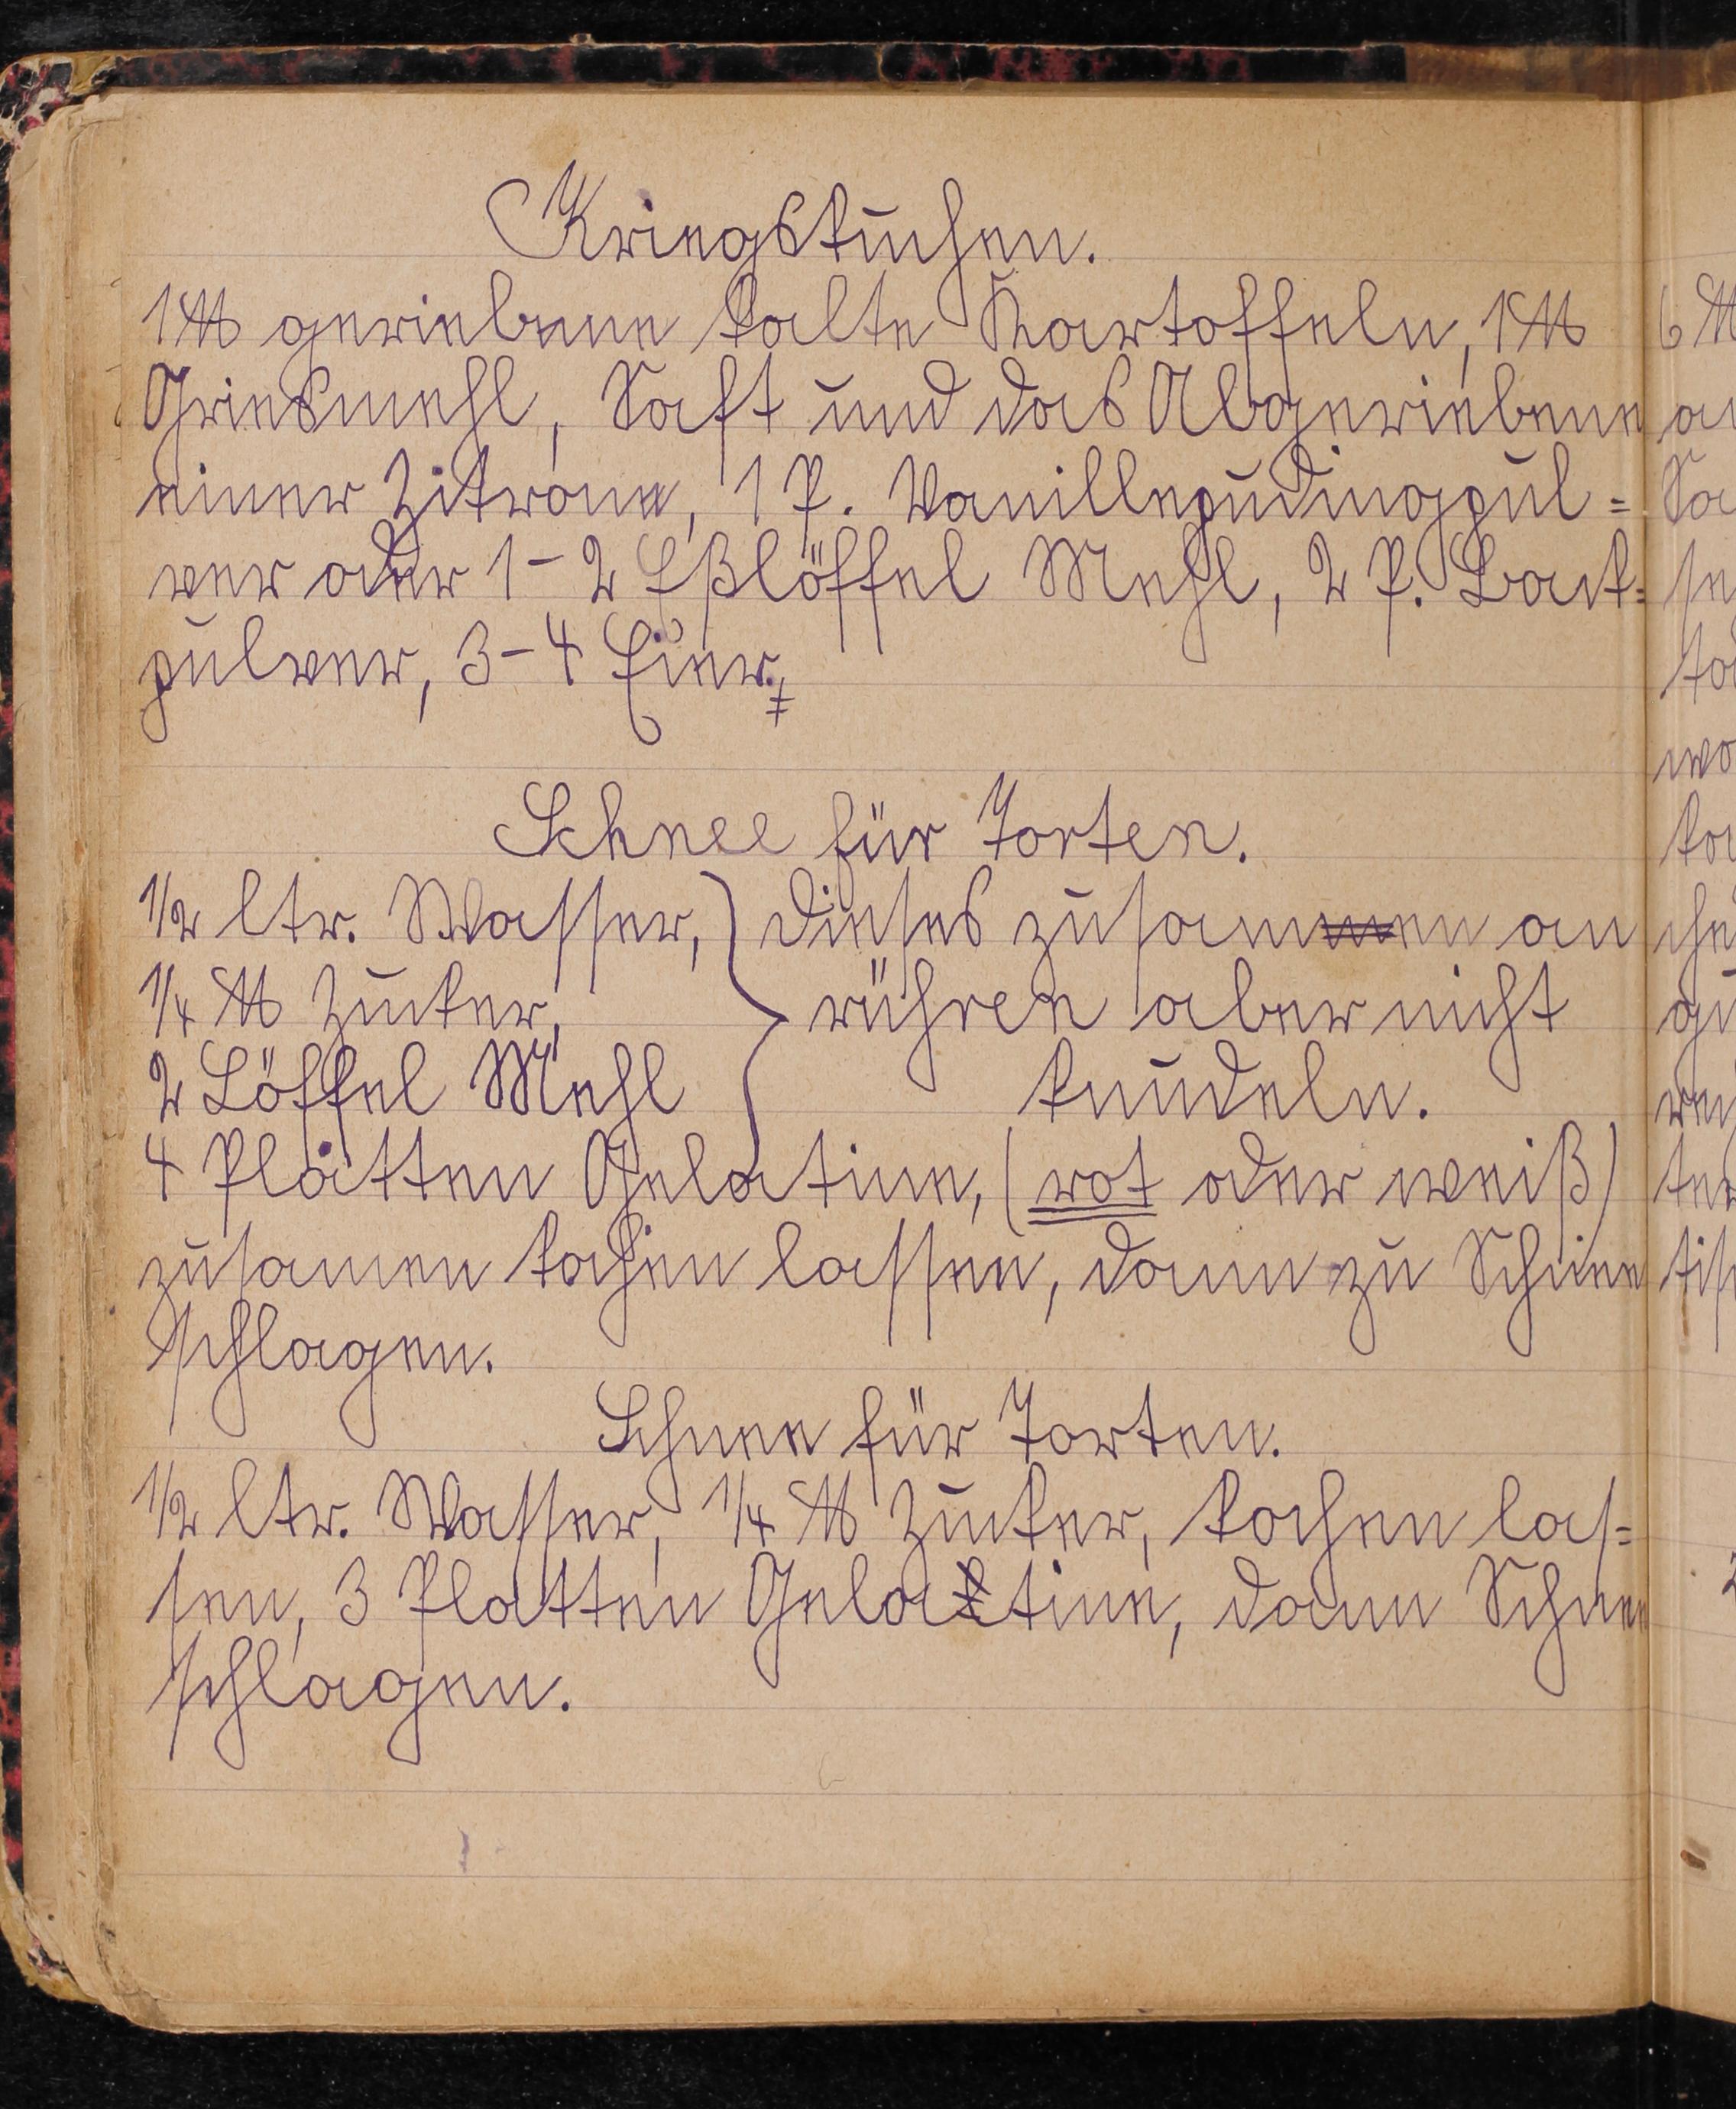 Kriegskuchen.
1 ℔ geriebene kalte Kartoffeln, 1 ℔
Griesmehl, Saft und das Abgeriebene
einer Zitrone, 1 P. Vanillepudingpul=
ver oder 1-2 Eßlöffel Mehl, 2 P. Back=
pulver, 3-4 Eier.
Schnee für Torten.
1/2 ltr. Wasser, } dieses zusammen an
1/4 ℔ Zucker, rühren aber nicht
2 Löffel Mehl knudeln.
4 Platten Gelatine, (rot oder weiß)
zusamen kochen lassen, dann zu Schnee
schlagen.
Schnee für Torten.
1/2 ltr. Wasser, 1/4 ℔ Zucker, kochen las=
sen, 3 Platten Gelatine, dann Schnee
schlagen.